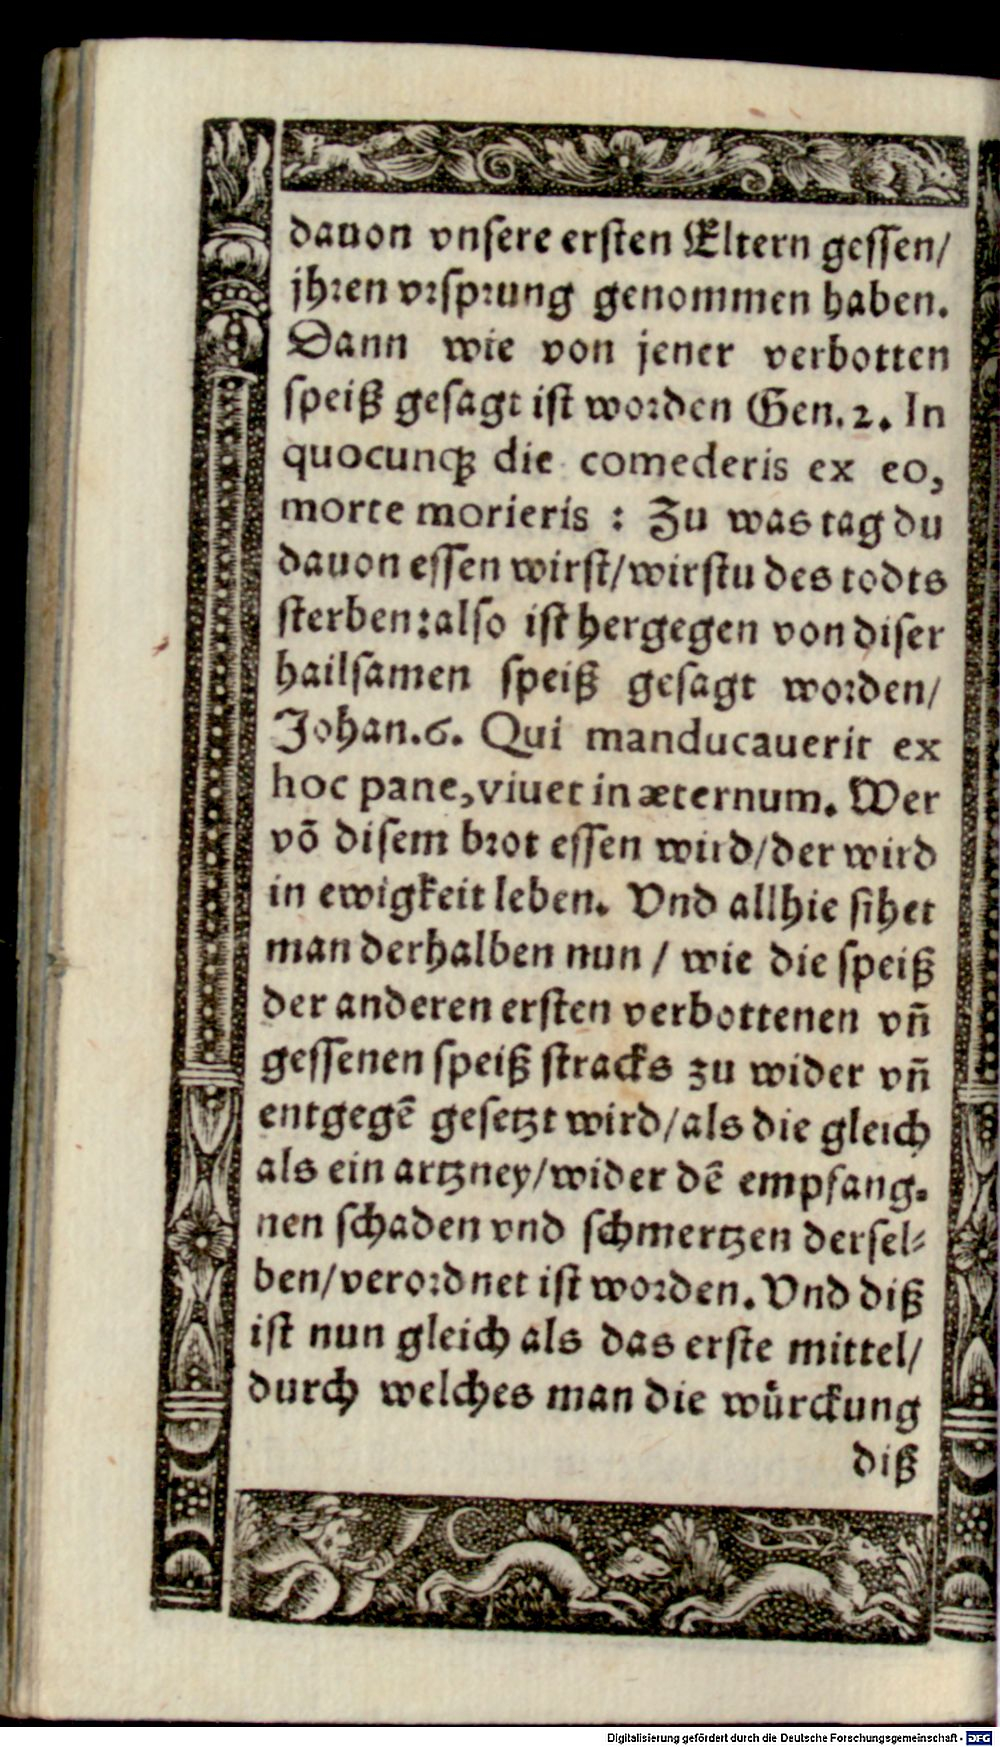 dauon vnsere ersten Eltern gessen/
jhren vrsprung genommen haben.
Dann wie von jener verbotten
speiß gesagt ist worden Gen. 2. In
quocunq; die comederis ex eo,
morte morieris : Zu was tag du
dauon essen wirst/wirstu des todts
sterben:also ist hergegen von diser
hailsamen speiß gesagt worden/
Johan.6. Qui manducauerit ex
hoc pane, viuet in æternum. Wer
võ disem brot essen wird/der wird
in ewigkeit leben. Vnd allhie sihet
man derhalben nun / wie die speiß
der anderen ersten verbottenen vñ
gessenen speiß stracks zu wider vñ
entgegẽ gesetzt wird/als die gleich
als ein artzney/wider dẽ empfang-
nen schaden vnd schmertzen dersel-
ben/verordnet ist worden. Vnd diß
ist nun gleich als das erste mittel/
durch welches man die wuͤrckung
diß
Digitalisierung gefördert durch die Deutsche Forschungsgemeinschaft - DFG